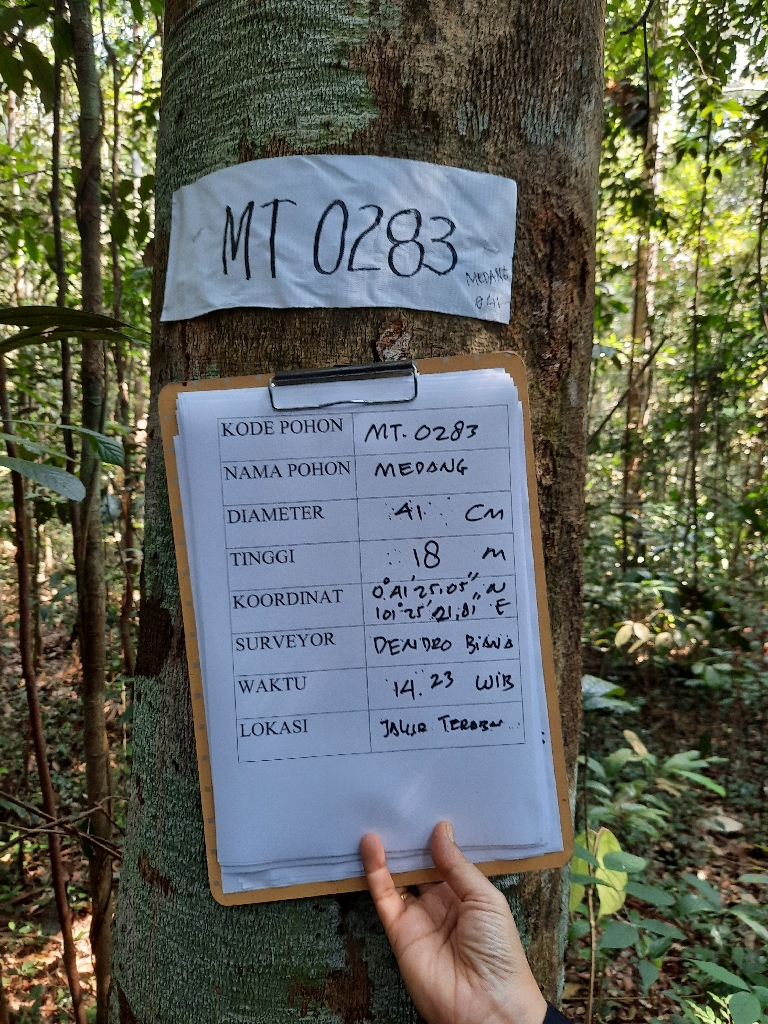 MT 0283
MEDANG
KODE POHON MT. 0283
NAMA POHON MEDANG
DIAMETER 41 CM
TINGGI 18 M
KOORDINAT 0° 41' 25,05" N
101° 25' 21,81" E
SURVEYOR DENDRO
WAKTU 14.23 WIB
LOKASI